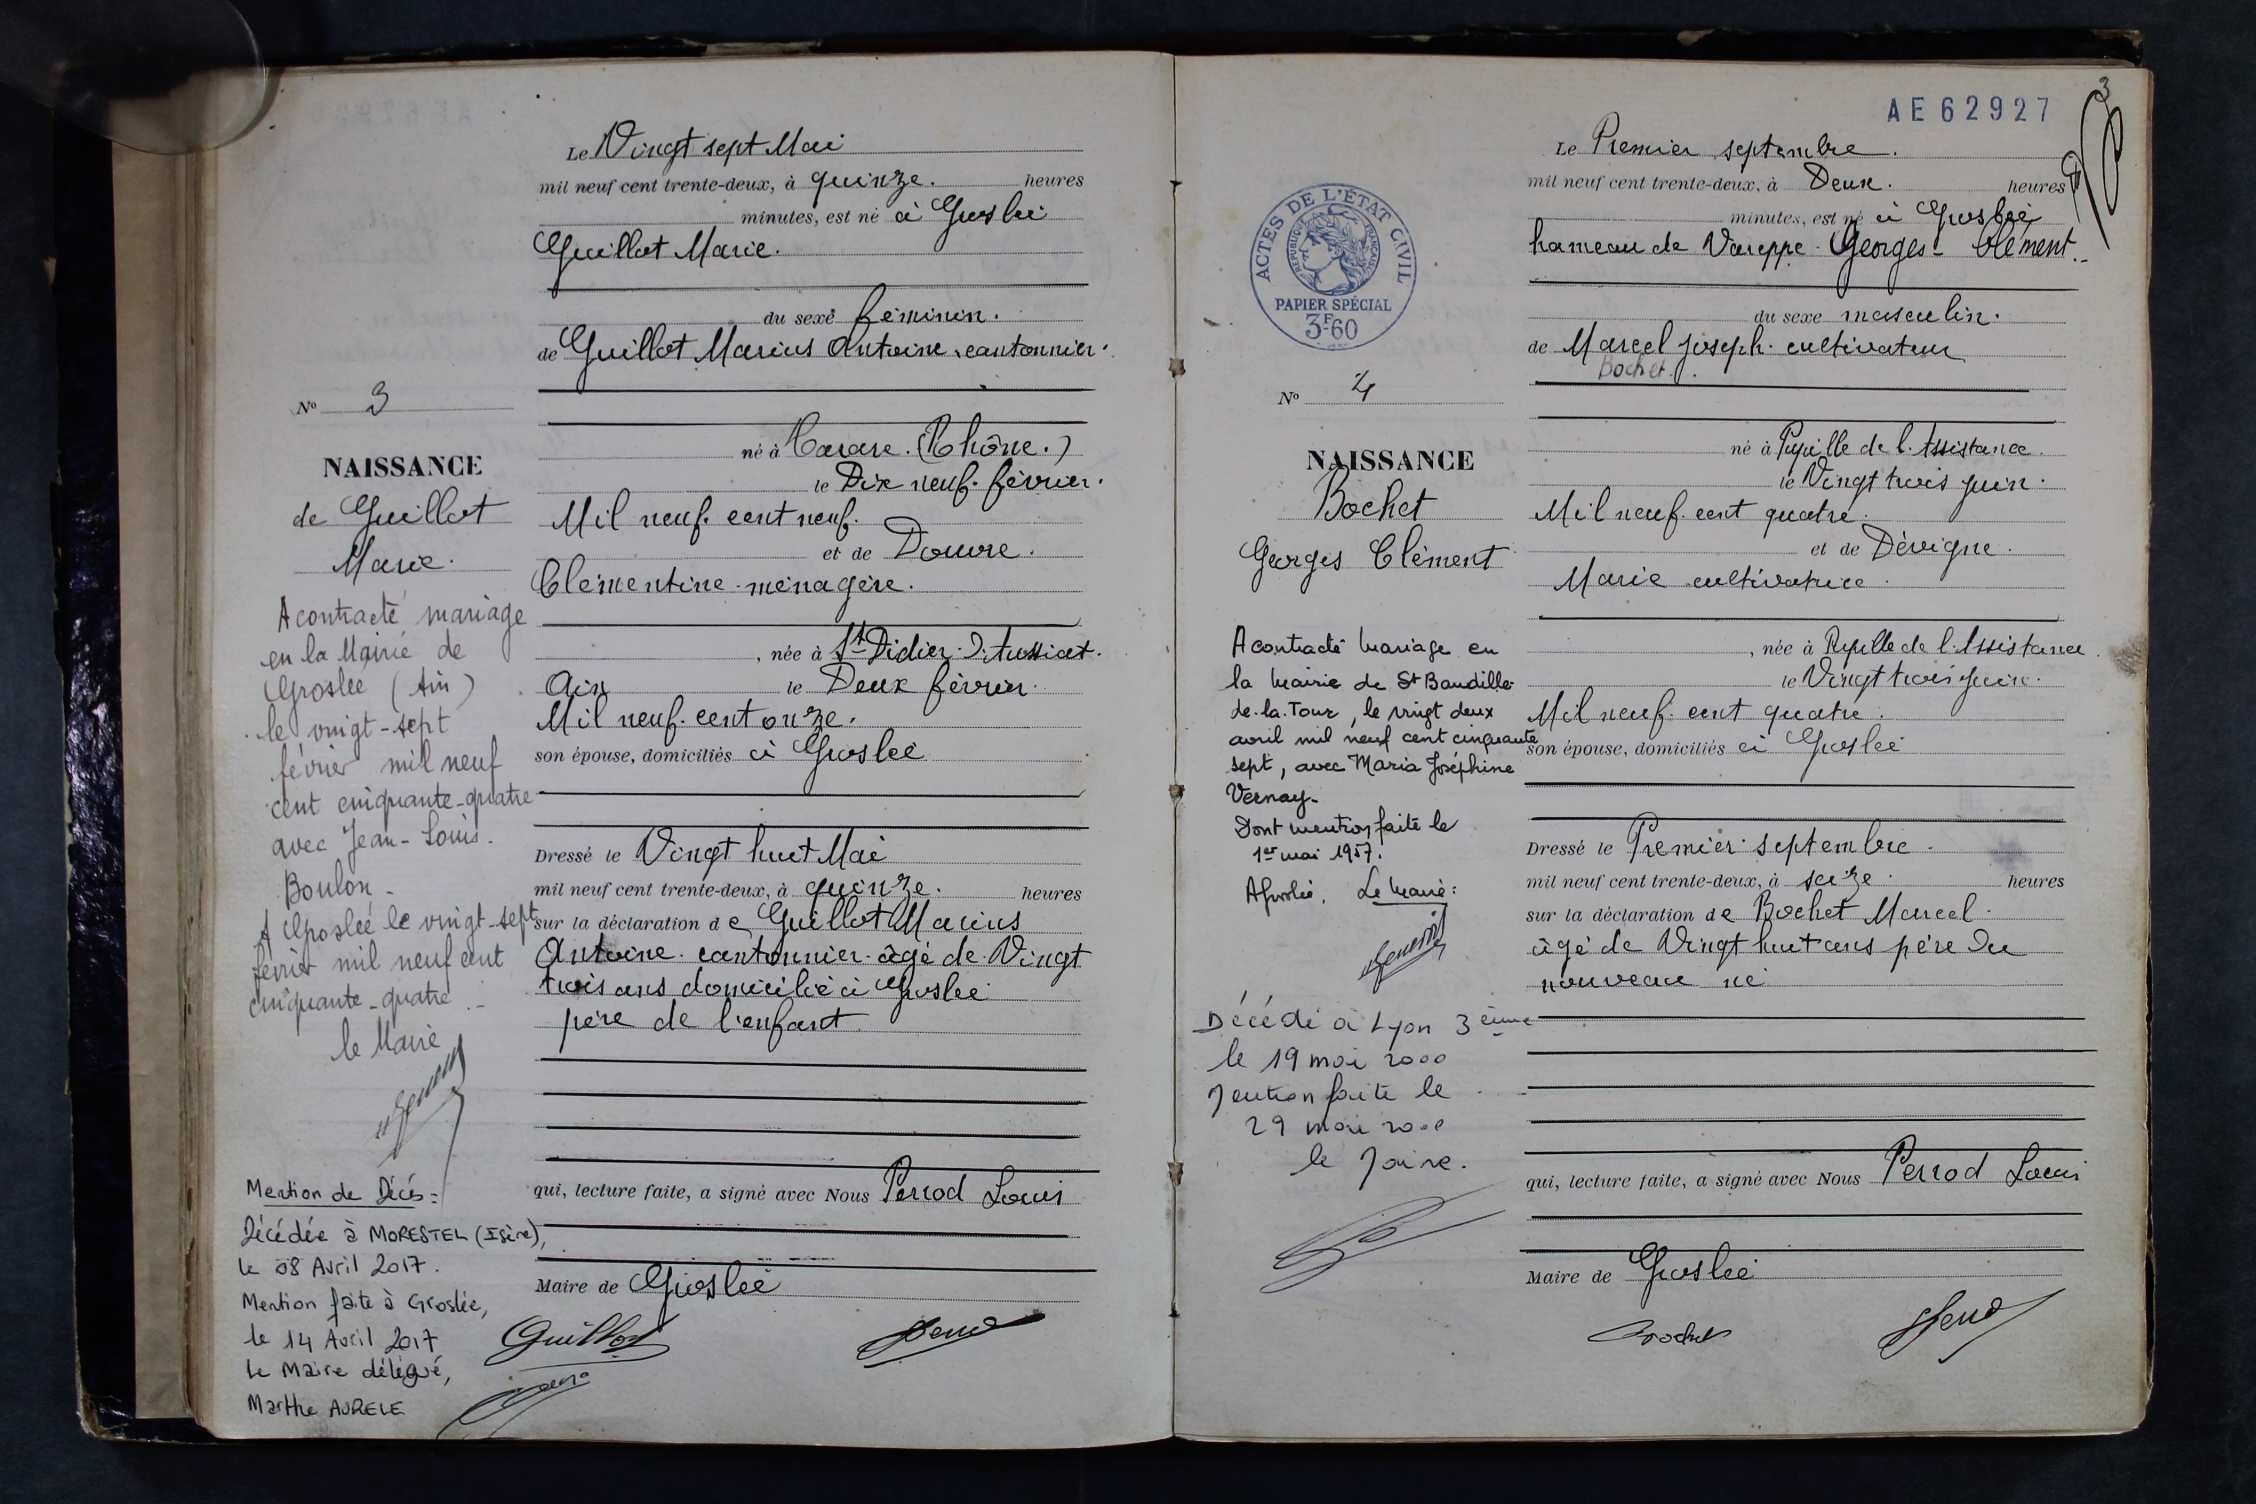 Le Vingt sept Mai
mil neuf cent trente-deux, à quinze. heures
minutes, est né à Groslée
Guillot Marie.
du sexe féminin.
de Guillot Marius Antoine, cantonnier.
No 3
né à Tarare. (Rhône.)
NAISSANCE
le Dix neuf. février.
de Guillot
Mil neuf. cent neuf.
Marie.
et de Douvre.
Clémentine. ménagère.
A contracté mariage
en la Mairie de
Groslée (Ain)
le vingt-sept
février mil neuf
cent cinquante-quatre
avec Jean-Louis.
Boulon -
A Groslée le vingt-sept
février mil neuf cent
cinquante-quatre.
le Maire
, née à St Didier. d'Aussiat.
Ain le Deux février.
Mil neuf. cent onze.
son épouse, domiciliés à Groslée
Dressé le Vingt huit Mai
mil neuf cent trente-deux, à quinze. heures
sur la déclaration de Guillot Marius
Antoine. cantonnier. âgé de Vingt
trois ans domicilié à Groslée
père de l'enfant
qui, lecture faite, a signé avec Nous Perrod Louis
Maire de Groslée
Guillot
Mention de Décès :
Décédée à MORESTEL (Isère),
le 08 Avril 2017.
Mention faite à Groslée,
le 14 Avril 2017
Le Maire délégué,
Marthe AURELE
3
AE62927
Le Premier septembre.
mil neuf cent trente-deux, à Deux. heures
minutes, est né à Groslée
hameau de Vareppe. Georges- Clément.-
ACTES DE L'ÉTAT CIVIL
RÉPUBLIQUE FRANÇAISE
PAPIER SPÉCIAL
3F60
du sexe masculin.
de Marcel Joseph. cultivateur
Bochet.
No 4
né à Pupille de l'Assistance.
NAISSANCE
le Vingt trois juin.
Bochet
Mil neuf. cent quatre.
Georges Clément
et de Dévigne.
Marie cultivatrice.
A contracté mariage en
la mairie de St Baudille-
de-la-Tour, le vingt deux
avril mil neuf cent cinquante
sept, avec Maria Joséphine
Vernay-
Dont mention faite le
1er mai 1957.
A Groslée. Le Maire :
, née à Pupille de l'Assistance.
le Vingt trois juin.
Mil neuf. cent quatre.
son épouse, domiciliés à Groslée
Dressé le Premier septembre.
mil neuf cent trente-deux, à seize. heures
sur la déclaration de Bochet Marcel.
âgé de Vingt huit ans père du
nouveau né
Décédé à Lyon 3ème
le 19 mai 2000
Mention faite le
29 mai 2000
le Maire.
qui, lecture faite, a signé avec Nous Perrod Louis
Maire de Groslée
Bochet